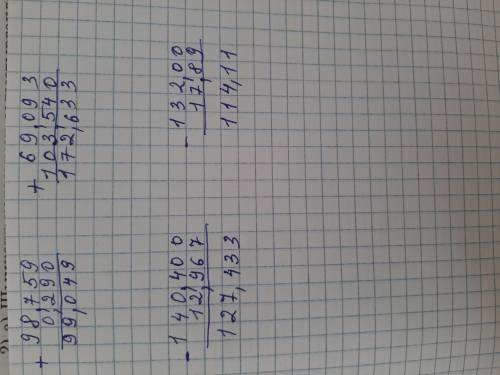 + 98,759
0,290
99,049
+ 69,093
103,540
172,633
- 140,400
12,967
127,433
- 132,00
17,89
114,11